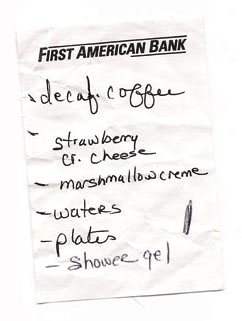 FIRST AMERICAN BANK
- decaf. coffee
- strawberry
cr. cheese
- marshmallow creme
- waters
- plates
- shower gel